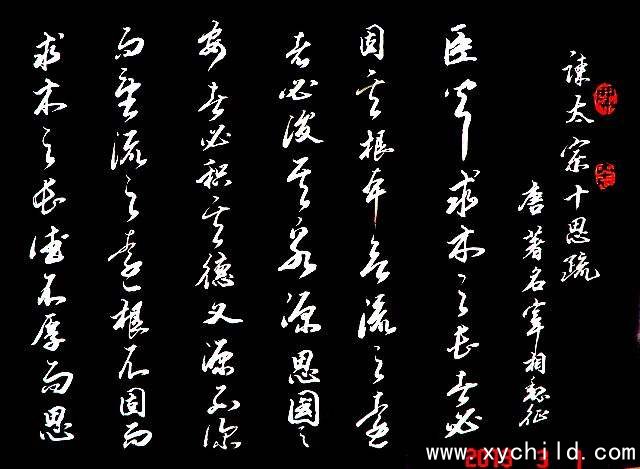 谏太宗十思疏
唐著名宰相魏征
臣闻求木之长者必
固其根本欲流之远
者必浚其泉源思国之
安者必积其德义源不深
而望流之远根不固而
求木之长德不厚而思
www.xychild.com